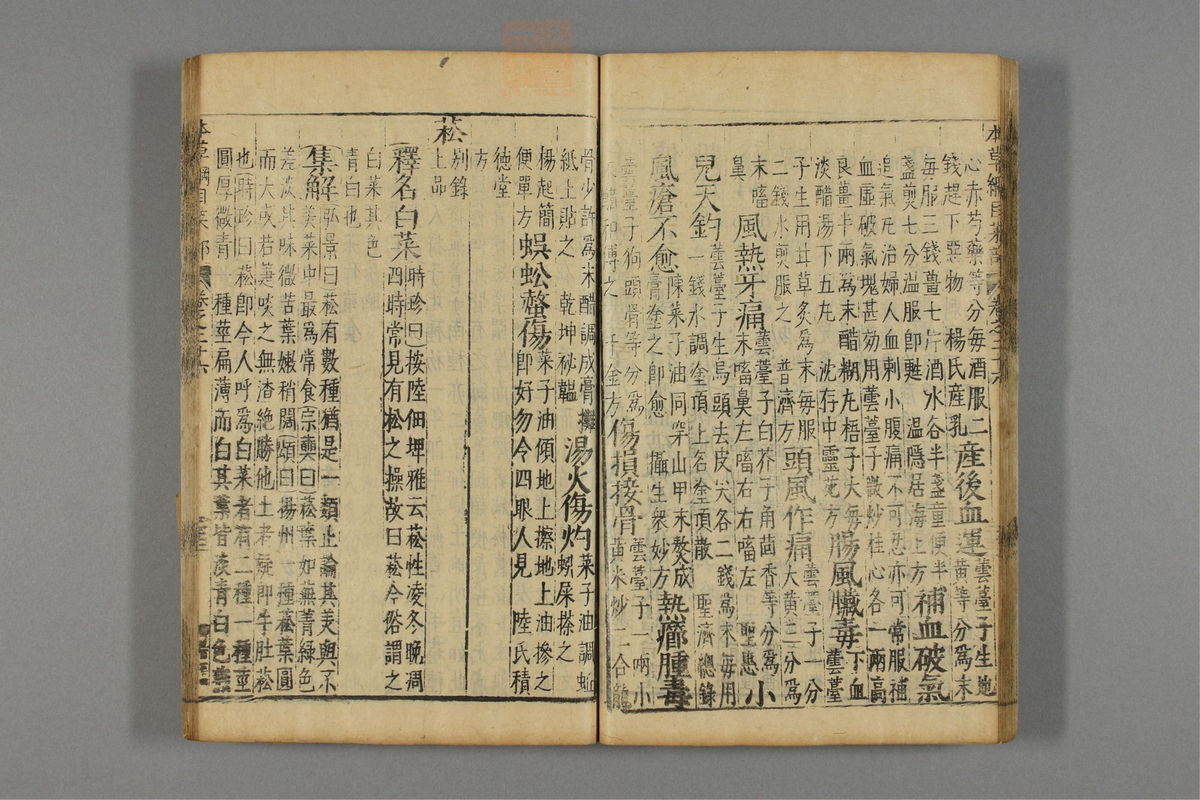 本草綱目菜部 卷之二十六
心赤芍藥等分每酒服二
錢趕下惡物 楊氏產乳
產後血運
蕓薹子生地
黃等分爲末
每服三錢薑七片酒水各半盞童便半
盞煎七分溫服卽甦 溫隱居海上方
補血破氣
追氣丸治婦人血刺小腹痛不可忍亦可常服補
血虛破氣塊甚効用蕓薹子微炒桂心各一兩高
良薑半兩爲末醋糊丸梧子大每
淡醋湯下五丸 沈存中靈苑方
腸風臟毒
下血
蕓薹
子生用甘草炙爲末每服
二錢水煎服之 普濟方
頭風作痛
蕓薹子一分
大黃三分爲
末㗜
鼻
風熱牙痛
蕓薹子白芥子角茴香等分爲
末㗜鼻左㗜右右㗜左 聖惠
小
兒天釣
蕓薹子生烏頭去皮尖各二錢爲末每用
一錢水調塗頂上名塗頂散 聖濟總錄
風瘡不愈
陳菜子油同穿山甲末熬成
膏塗之卽愈 攝生衆妙方
熱癤腫毒
蕓薹子狗頭骨等分爲
末醋和傅之 千金方
傷損接骨
蕓薹子一兩小
黃米炒二合龍
骨少許爲末醋調成膏攤
紙上貼之 乾坤秘韞
湯火傷灼
菜子油調蚯
蚓屎搽之
楊起簡
便單方
蜈蚣螫傷
菜子油傾地上擦地上油摻之
卽好勿令四眼人見 陸氏積
德堂
方
菘
别錄
上品
釋名白菜
時珍曰按陸佃埤雅云菘性凌冬晚凋
四時常見有松之操故曰菘今俗謂之
白菜其色
青白也
集解
弘景曰菘有數種猶是一類止論其美與不
美菜中最爲常食宗奭曰菘葉如蕪菁綠色
差淡其味微苦葉嫩稍闊頌曰揚州一種菘葉圓
而大或若箑啖之無渣絶勝他土者疑卽牛肚菘
也時珍曰菘卽今人呼爲白菜者有二種一種莖
圓厚微青一種莖扁薄而白其葉皆淡青白色
本草綱目菜部 卷之二十六